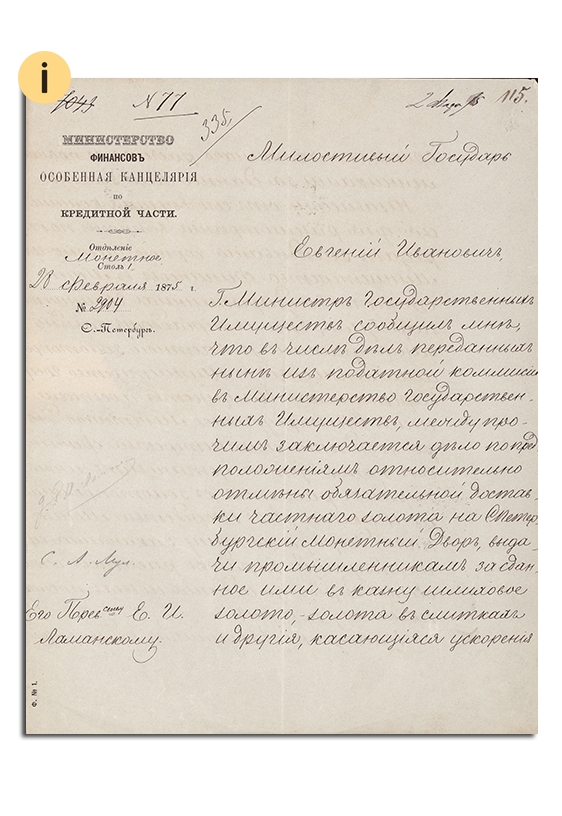 i
7043 N 77
335
2 Марта 75 115.
МИНИСТЕРСТВО
ФИНАНСОВЪ
ОСОБЕННАЯ КАНЦЕЛЯРІЯ
ПО
КРЕДИТНОЙ ЧАСТИ.
Отдѣленіе
Монетное
Столъ 1
28 Февраля 1875 г.
№ 2904
С.-Петербургъ.
Милостивый Государь
Евгеній Ивановичъ,
Г. Министръ Государственныхъ
Имуществъ сообщилъ мнѣ,
что въ числѣ дѣлъ переданныхъ
нынѣ изъ податной коммисіи
въ Министерство Государствен-
ныхъ Имуществъ, между про-
чимъ заключается дѣло по пред
положеніямъ относительно
отмѣны обязательной достав-
ки частнаго золота на СПетер-
бургскій Монетный Дворъ, выда-
чи промышленникамъ за сдан-
ное ими въ казну шлиховое
золото,-золота въ слиткахъ
и другія, касающіяся ускоренія
С. А. Мул.
Его Прев-ству Е. И.
Ламанскому.
Ф. № 1.